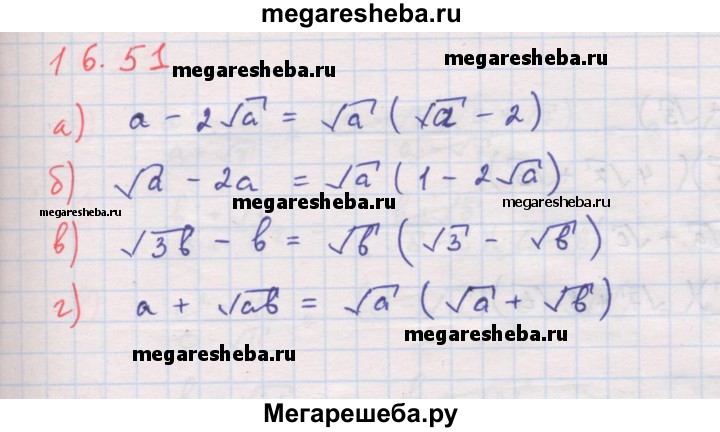 megaresheba.ru
16.51
megaresheba.ru
megaresheba.ru
а) a - 2√a = √a (√a - 2)
б) √a - 2a = √a (1 - 2√a)
megaresheba.ru
megaresheba.ru
megaresheba.ru
в) √3b - b = √b (√3 - √b)
г) a + √ab = √a (√a + √b)
megaresheba.ru
megaresheba.ru
Мегарешеба.ру